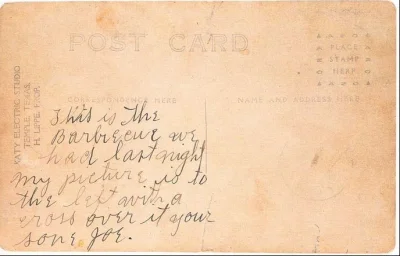 POST CARD
PLACE
STAMP
HERE
CORRESPONDENCE HERE
NAME AND ADDRESS HERE
KATY ELECTRIC STUDIO
TEMPLE, TEXAS.
H. LIPPE, PROP.
This is the
Barbecue we
had last night
my picture is to
the left with a
cross over it your
sone Joe.